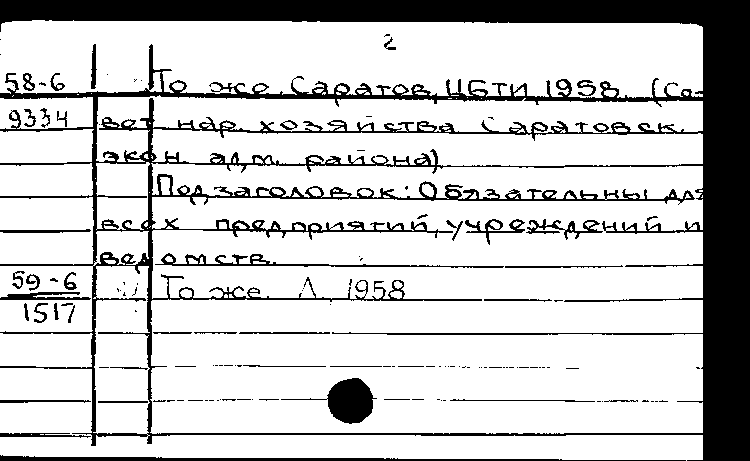 2
58-6 То же. Саратов, ЦБТИ, 1958. (Со-
9334 вет нар. хозяйства Саратовск.
экон. адм. района)
Подзаголовок: Обязательны для
всех предприятий, учреждений и
ведомств.
59-6 То же. Л., 1958
1517